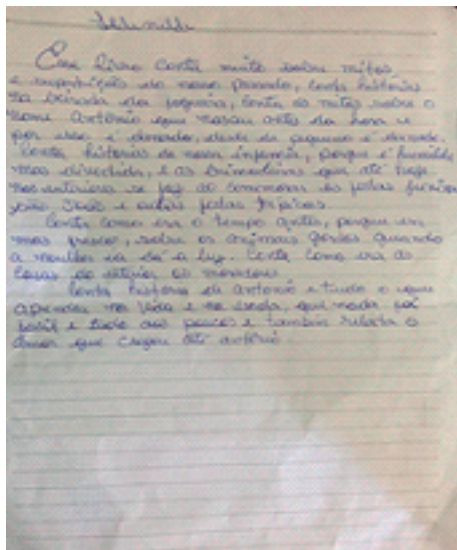 Esse livro conta muito sobre mitos
e superstição do nosso passado, conta histórias
na beirada da fogueira, conta os mitos sobre o
nome Antônio que nasceu antes da hora e
por isso é danado, desde de pequeno é danado.
Conta histórias da nossa infancia, porque é humilde
mas divertida, e as brincadeiras que até hoje
nos interiores se faz ao comemorar as festas
João e outras festas
Conta como era o tempo antes, porque era
mas sobre os animais quando
a mulher ia dá a luz. Conta como era as
casas do os moradores
Conta história de antonio e tudo o que
aprendeu na vida e na escola, que nada foi
facil e tudo aos poucos e também relata o
amor que chegou até antônio